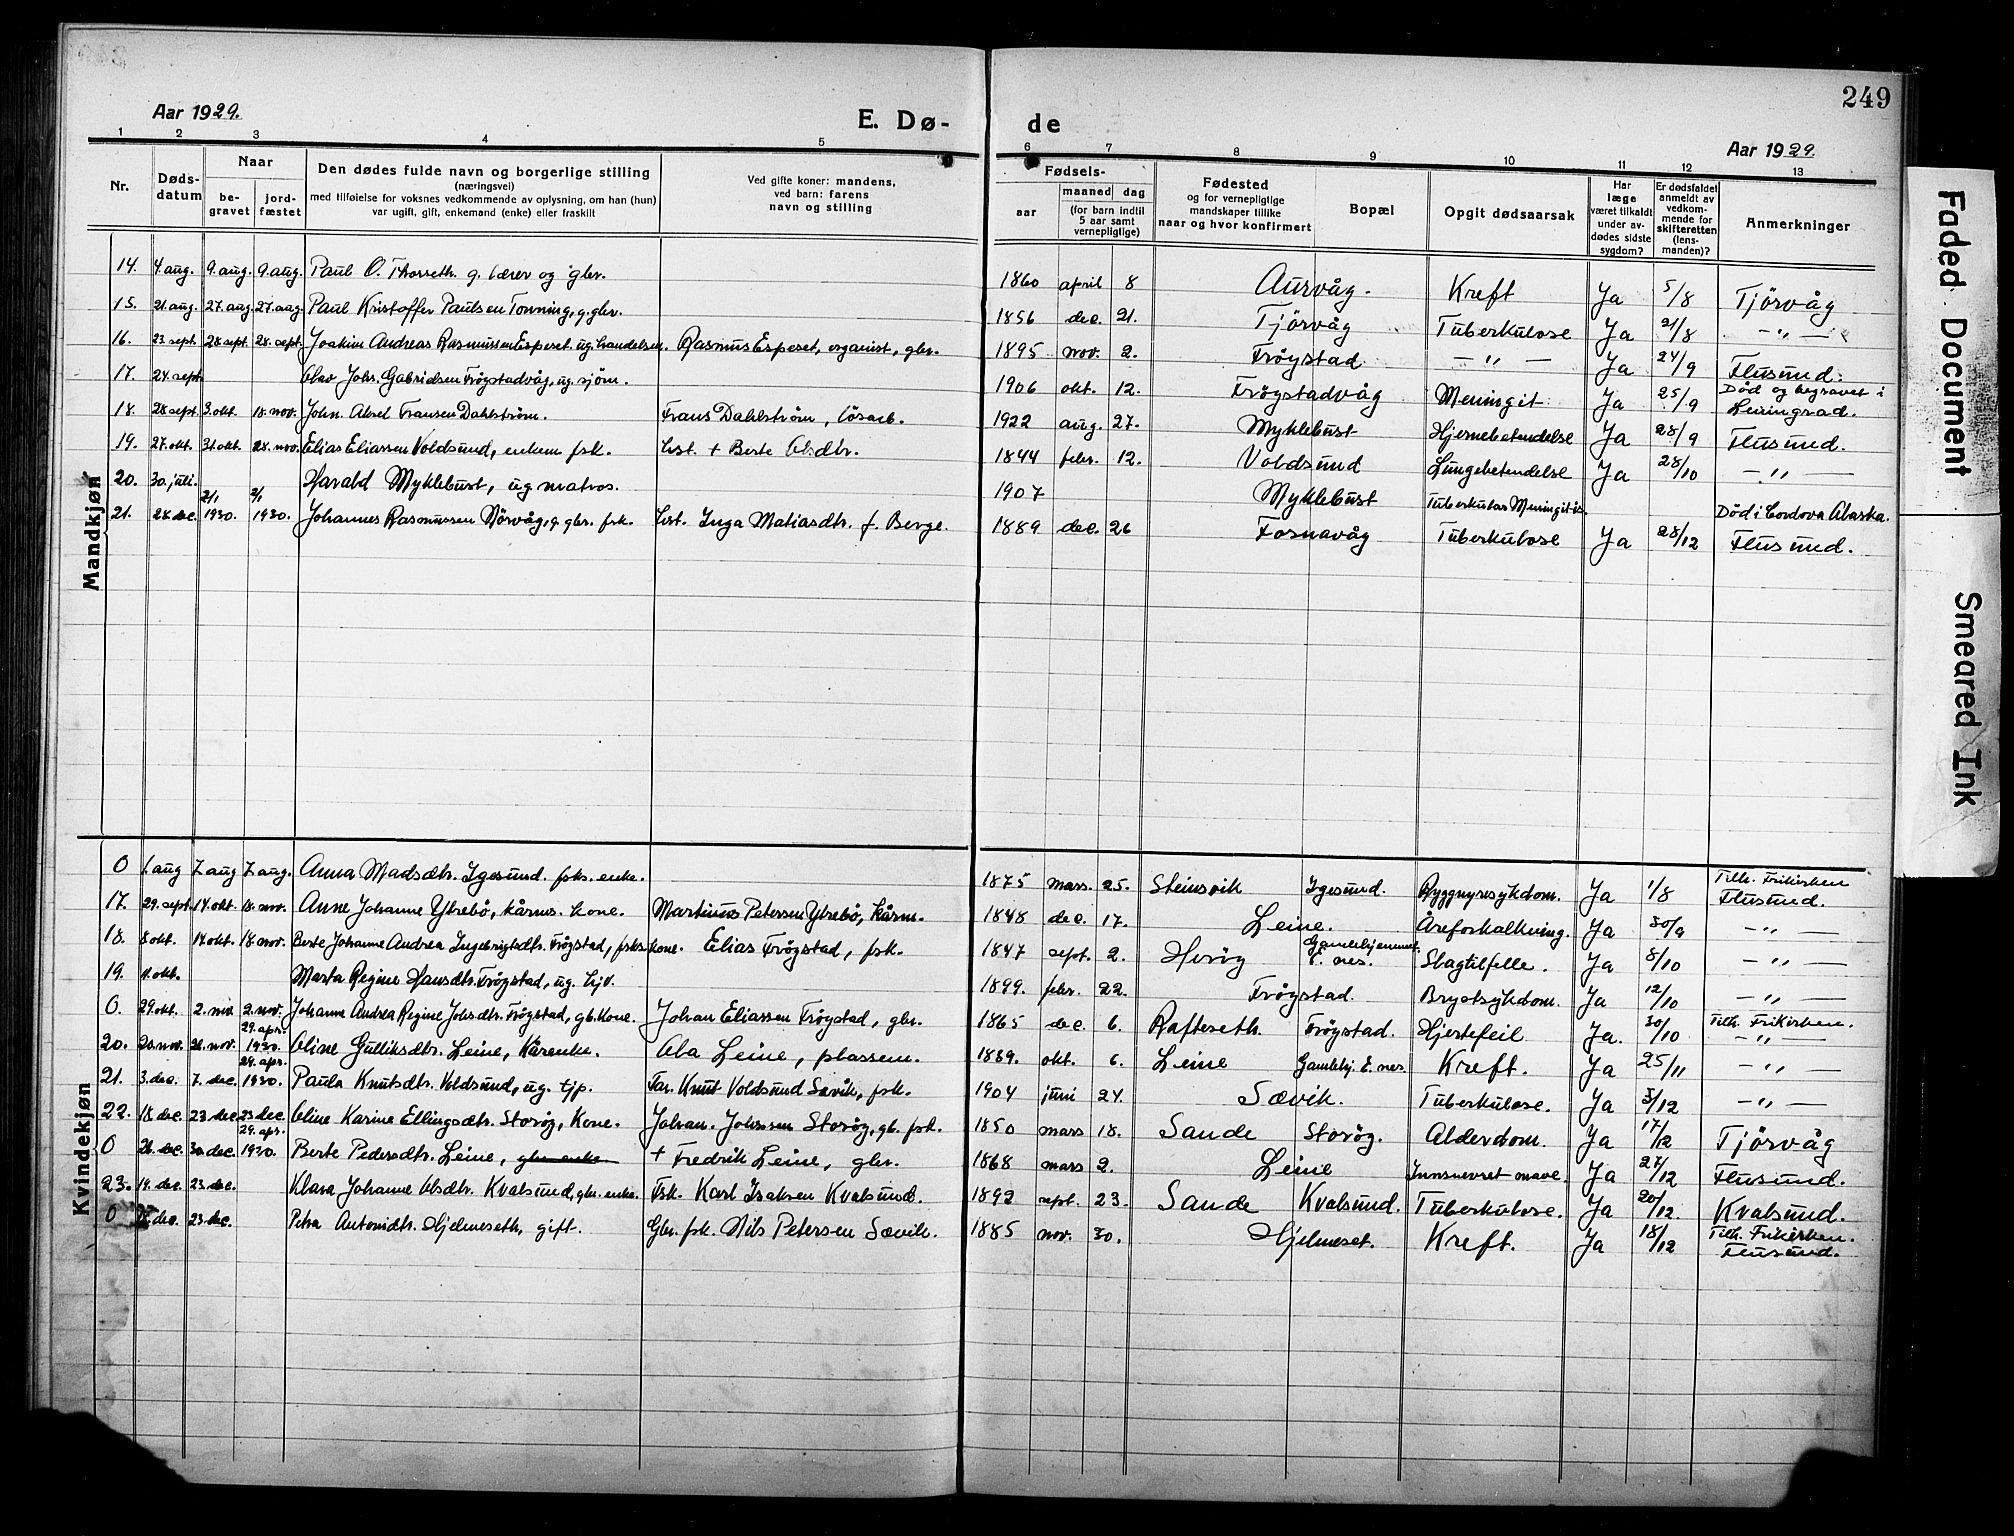 249
Aar 1929.
E. Dø-
de
Aar 1929.
1 2 3 4 5 6 7 8 9 10 11 12 13
Nr.
Døds-
datum
Naar
be-
gravet
jord-
fæstet
Den dødes fulde navn og borgerlige stilling
(næringsvei)
med tilføielse for voksnes vedkommende av oplysning, om han (hun)
var ugift, gift, enkemand (enke) eller fraskilt
Ved gifte koner: mandens,
ved barn: farens
navn og stilling
Fødsels-
aar
maaned dag
(for barn indtil
5 aar samt
vernepligtige)
Fødested
og for vernepligtige
mandskaper tillike
naar og hvor konfirmert
Bopæl
Opgit dødsaarsak
Har
læge
været tilkaldt
under av-
dødes sidste
sygdom?
Er dødsfaldet
anmeldt av
vedkom-
mende for
skifteretten
(lens-
manden)?
Anmerkninger
Mandkjøn
14. 4 aug. 9. aug. 9. aug. Paul O. Thorseth. g. lærer og gbr. 1860 april 8 Aurvåg. Kreft Ja 5/8 Tjörvåg
15. 21. aug. 27. aug. 27. aug. Paul Kristoffer Paulsen Tonning, g. gbr. 1856 dec. 21. Tjörvåg Tuberkulose Ja 21/8 — „ —
16. 23. sept. 28 sept. 28. sept. Joakim Andreas Rasmussen Espeset. ug. handelsm. Rasmus Espeset, organist, gbr. 1895 nov. 2. Fröystad — „ — Ja 24/9 Flusund.
17. 24. sept. Olav Johs. Gabrielsen Fröystadvåg, ug. sjöm. 1906 okt. 12. Fröystadvåg Meningit Ja 25/9 Död og begravet i
Leningrad.
18. 28 sept. 3. okt. 18. nov. John Aksel Fransen Dahlström. Frans Dahlström, lösarb. 1922 aug. 27. Myklebust Hjernebetendelse Ja 28/9 Flusund.
19. 27. okt. 31. okt. 28. nov. Elias Eliassen Voldsund, enkem fsk. Lest. + Berte Olsdtr. 1844 febr. 12. Voldsund Lungebetendelse Ja 28/10 — „ —
20. 30. juli. Harald Myklebust, ug matros. 1907 Myklebust Tuberkulös Meningitis. Död i Cordova Alaska.
21. 28 dec. 2/1 1930. 2/1 1930. Johannes Rasmussen Nörvåg, g. gbr. fsk. Lest. Inga Matiasdtr. f. Berge. 1889 dec. 26 Fosnavåg Tuberkulose Ja 28/12 Flusund.
Kvindekjøn
0 1. aug 7. aug 7. aug. Anna Madsdtr. Igesund. fsks. enke. 1875 mars. 25. Steinsvik Igesund. Ryggnyresykdom. Ja 1/8 Tilh. Frikirken
Flusund.
17. 29. sept. 14. okt. 18. nov. Anne Johanne Ytrebö, kårms. kone. Martinus Petersen Ytrebö, kårm. 1848 dec. 17. Leine. Åreforkalkning. Ja 30/9 — „ —
18. 8 okt. 14 okt. 18 nov. Berte Johanne Andrea Ingebrigtsdtr. Fröystad, fsks kone. Elias Fröystad, fsk. 1847 sept. 2. Heröy Gamlehjemmet
E. nes. Slagtilfelle. Ja 8/10 — „ —
19. 11. okt. Marta Regine Hansdtr. Fröystad, ug. hjv. 1899. febr. 22. Fröystad. Brystsykdom. Ja 12/10 — „ —
0. 29. okt. 2. nov. 2. nov. Johanne Andrea Regine Johsdtr. Fröystad, gb. kone. Johan Eliassen Fröystad, gbr. 1865 dec. 6. Rafteseth. Fröystad. Hjertefeil Ja. 30/10 Tilh. Frikirken.
— „ —
20. 20. nov. 26. nov. 29. apr. 1930. Oline Gulliksdtr. Leine, kårenke. Ola Leine, plassem. 1839. okt. 6. Leine Gamlehj. E. nes. Kreft. Ja 25/11 — „ —
21. 3. dec. 7. dec. 29. apr. 1930. Paula Knutsdtr. Voldsund, ug. tjp. Far. Knut Voldsund Sævik, fsk. 1904 juni 24. Sævik. Tuberkulose. Ja 3/12 — „ —
22. 18 dec. 23 dec. 23 dec. Oline Karine Ellingsdtr. Storöy, kone. Johan. Johnsen Storöy, gb. fsk. 1850 mars 18. Sande Storöy. Alderdom. Ja 17/12 Tjörvåg
0 26. dec. 30. dec. 29. apr. 1930. Berte Pedersdtr. Leine, gbr enke + Fredrik Leine, gbr. 1868 mars 2. Leine Innsnevret mave. Ja 27/12 Flusund.
23. 19. dec. 23. dec. Klara Johanne Olsdtr. Kvalsund, gbr. enke. Fsk. Karl Isaksen Kvalsund. 1892 sept. 23. Sande Kvalsund. Tuberkulose. Ja 20/12 Kvalsund.
0 18 dec. 23 dec. Petra Antonidtr. Hjelmeseth, gift. Gbr. fsk. Nils Petersen Sævik. 1885 nov. 30. Hjelmeset. Kreft. Ja 18/12 Tilh. Frikirken.
Flusund.
Faded Document
Smeared Ink